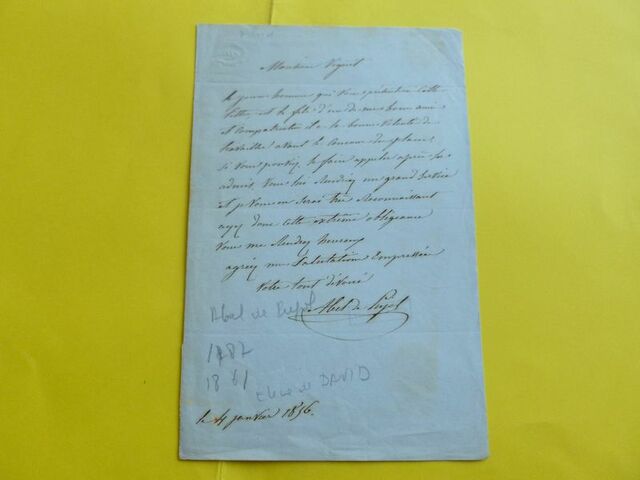 Monsieur Vignel
le jeune homme qui vous présentera cette
lettre, est le fils d'un de mes bons amis
et compatriotes il a la bonne volonté de
travailler avant le concours des places
si vous pouviez le faire appeler après les
admis, vous lui rendriez un grand service
et je vous en serai très reconnaissant
ayez donc cette extrême obligeance
vous me rendrez heureux
agréez ma salutation empressée
votre tout dévoué
Abel de Pujol
Abel de Pujol
1787
1861
élève de DAVID
le 4 janvier 1856.